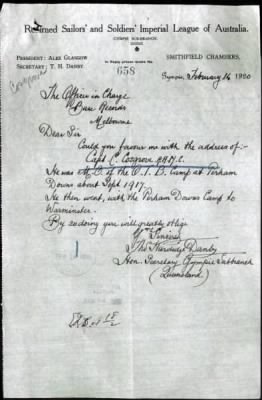 Returned Sailors' and Soldiers' Imperial League of Australia.
GYMPIE SUB-BRANCH.
PRESIDENT: ALEX GLASGOW
SECRETARY: T. H. DANBY.
In Reply please quote No.
658
SMITHFIELD CHAMBERS.
Gympie, February 16 1920
The Officer in Charge
Base Records
Melbourne
Dear Sir
Could you favour me with the address of:-
Capt C. Cosgrove AAMC.
He was M.O. of the O.T.B. Camp at Perham
Downs about Sept 1917.
He then went, with the Perham Downs Camp to
Warminster.
By so doing you will greatly oblige
Yrs Sincerely
Thos Hardwidge Danby
Hon. Secretary Gympie Subbranch
(Queensland)